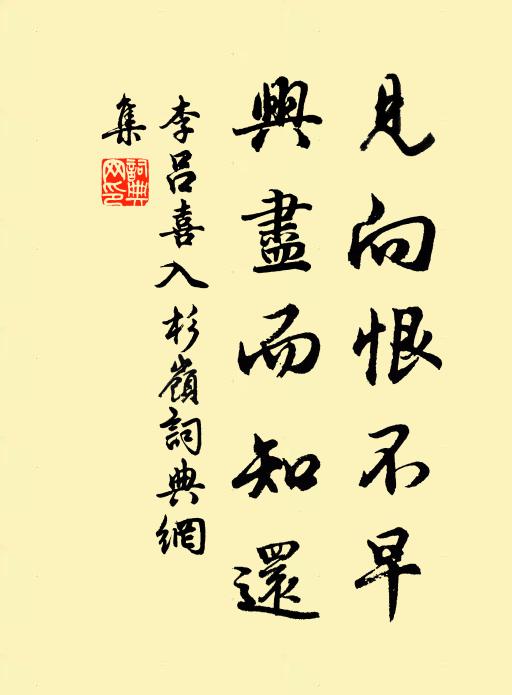 見向恨不早
興盡而知還
李呂喜入杉嶺詞典網
集
詞典網印